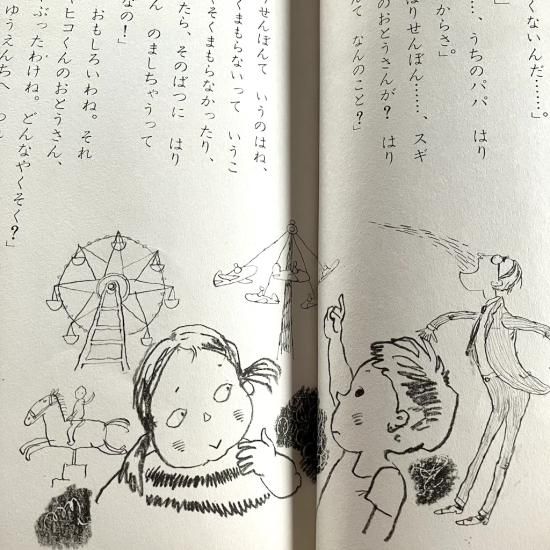 くないんだ……」。
……、うちのパパ はり
からさ」
はりせんぼん……、スギ
のおとうさんが？ はり
んて なんのこと？」
せんぼんて いうのはね、
くまもらないって いうこ
そくまもらなかったり、
たら、そのばつに はり
ん のましちゃうって
なの！」
おもしろいわね。それ
ヒコくんのおとうさん、
ぶったわけね。どんなやくそく？」
ゆうえんちへ